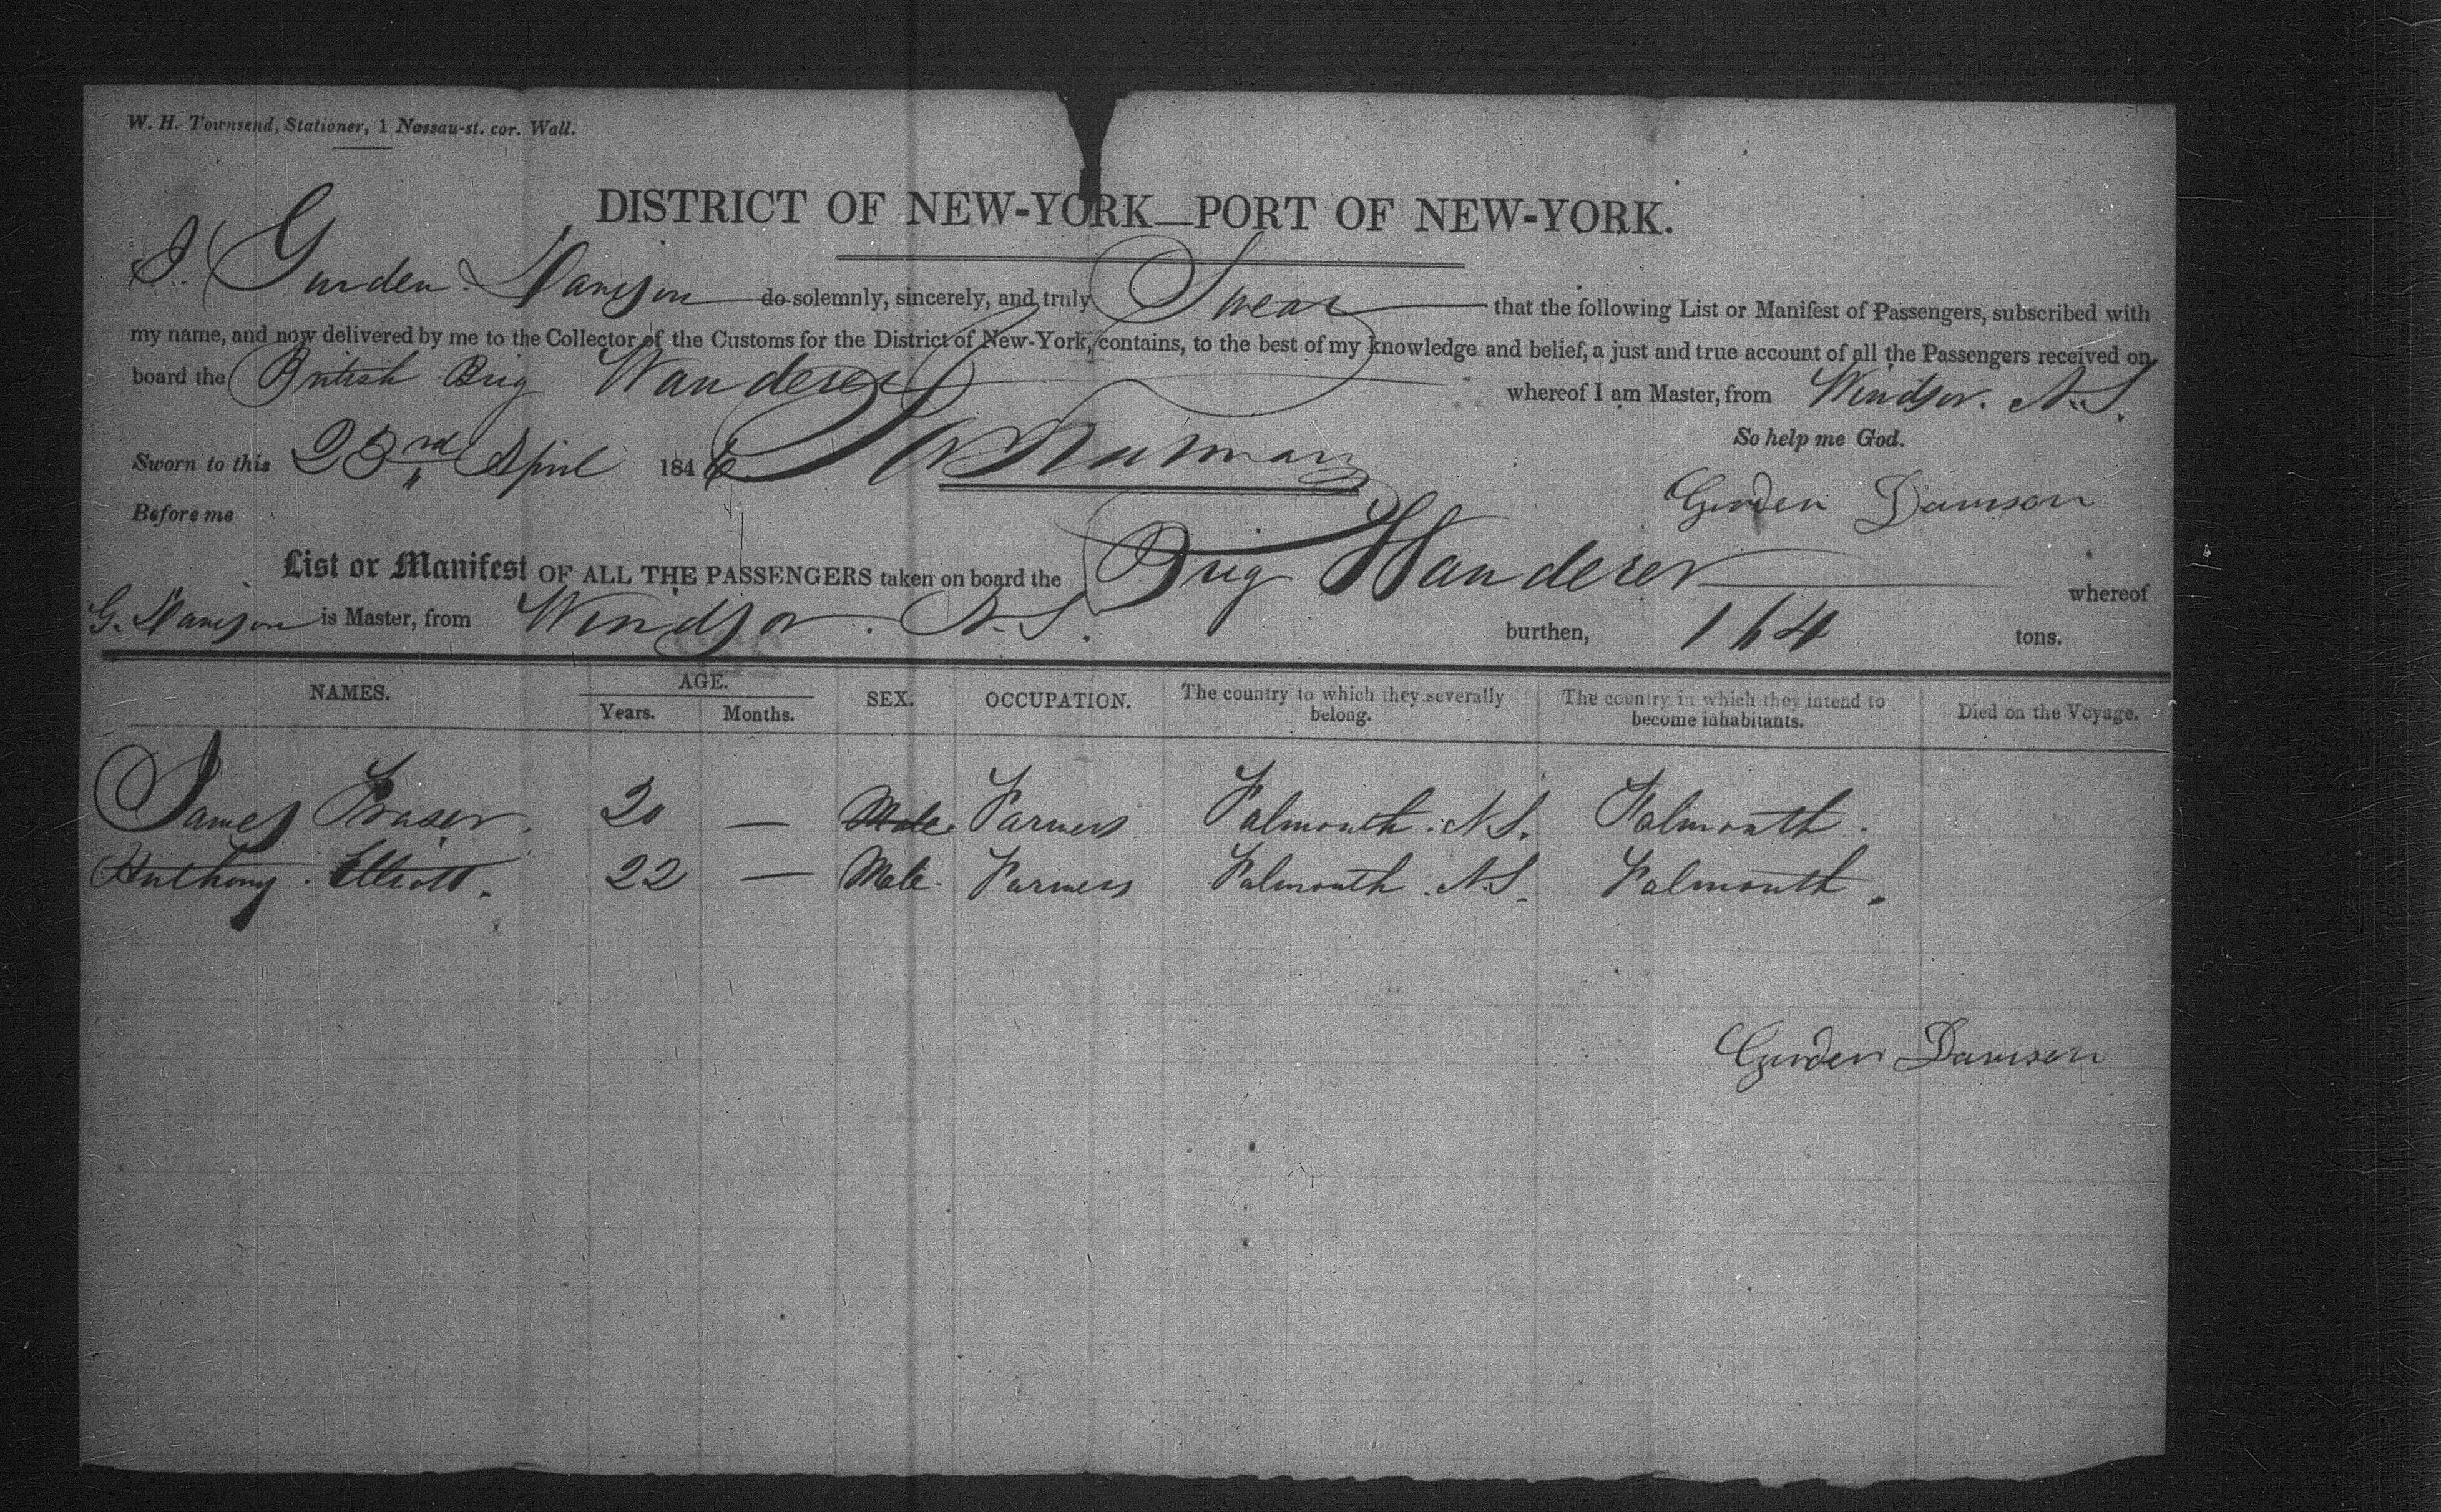 W. H. Townsend, Stationer, 1 Nassau-st. cor. Wall.
DISTRICT OF NEW-YORK—PORT OF NEW-YORK.
I. Gurden Davison do solemnly, sincerely, and truly Swear that the following List or Manifest of Passengers, subscribed with
my name, and now delivered by me to the Collector of the Customs for the District of New-York, contains, to the best of my knowledge and belief, a just and true account of all the Passengers received on
board the British Brig Wanderer whereof I am Master, from Windsor. N.S.
So help me God.
Sworn to this 23rd April 1846
Gurden Davison
Before me
List or Manifest OF ALL THE PASSENGERS taken on board the Brig Wanderer whereof
G. Davison is Master, from Windsor. N.S. burthen, 164 tons.
NAMES. AGE. Years. Months. SEX. OCCUPATION. The country to which they severally belong. The country in which they intend to become inhabitants. Died on the Voyage.
James Fraser. 20 — Male. Farmers Falmouth. N.S. Falmouth.
Anthony. Elliott. 22 — Male. Farmers Falmouth. N.S. Falmouth.
Gurden Davison